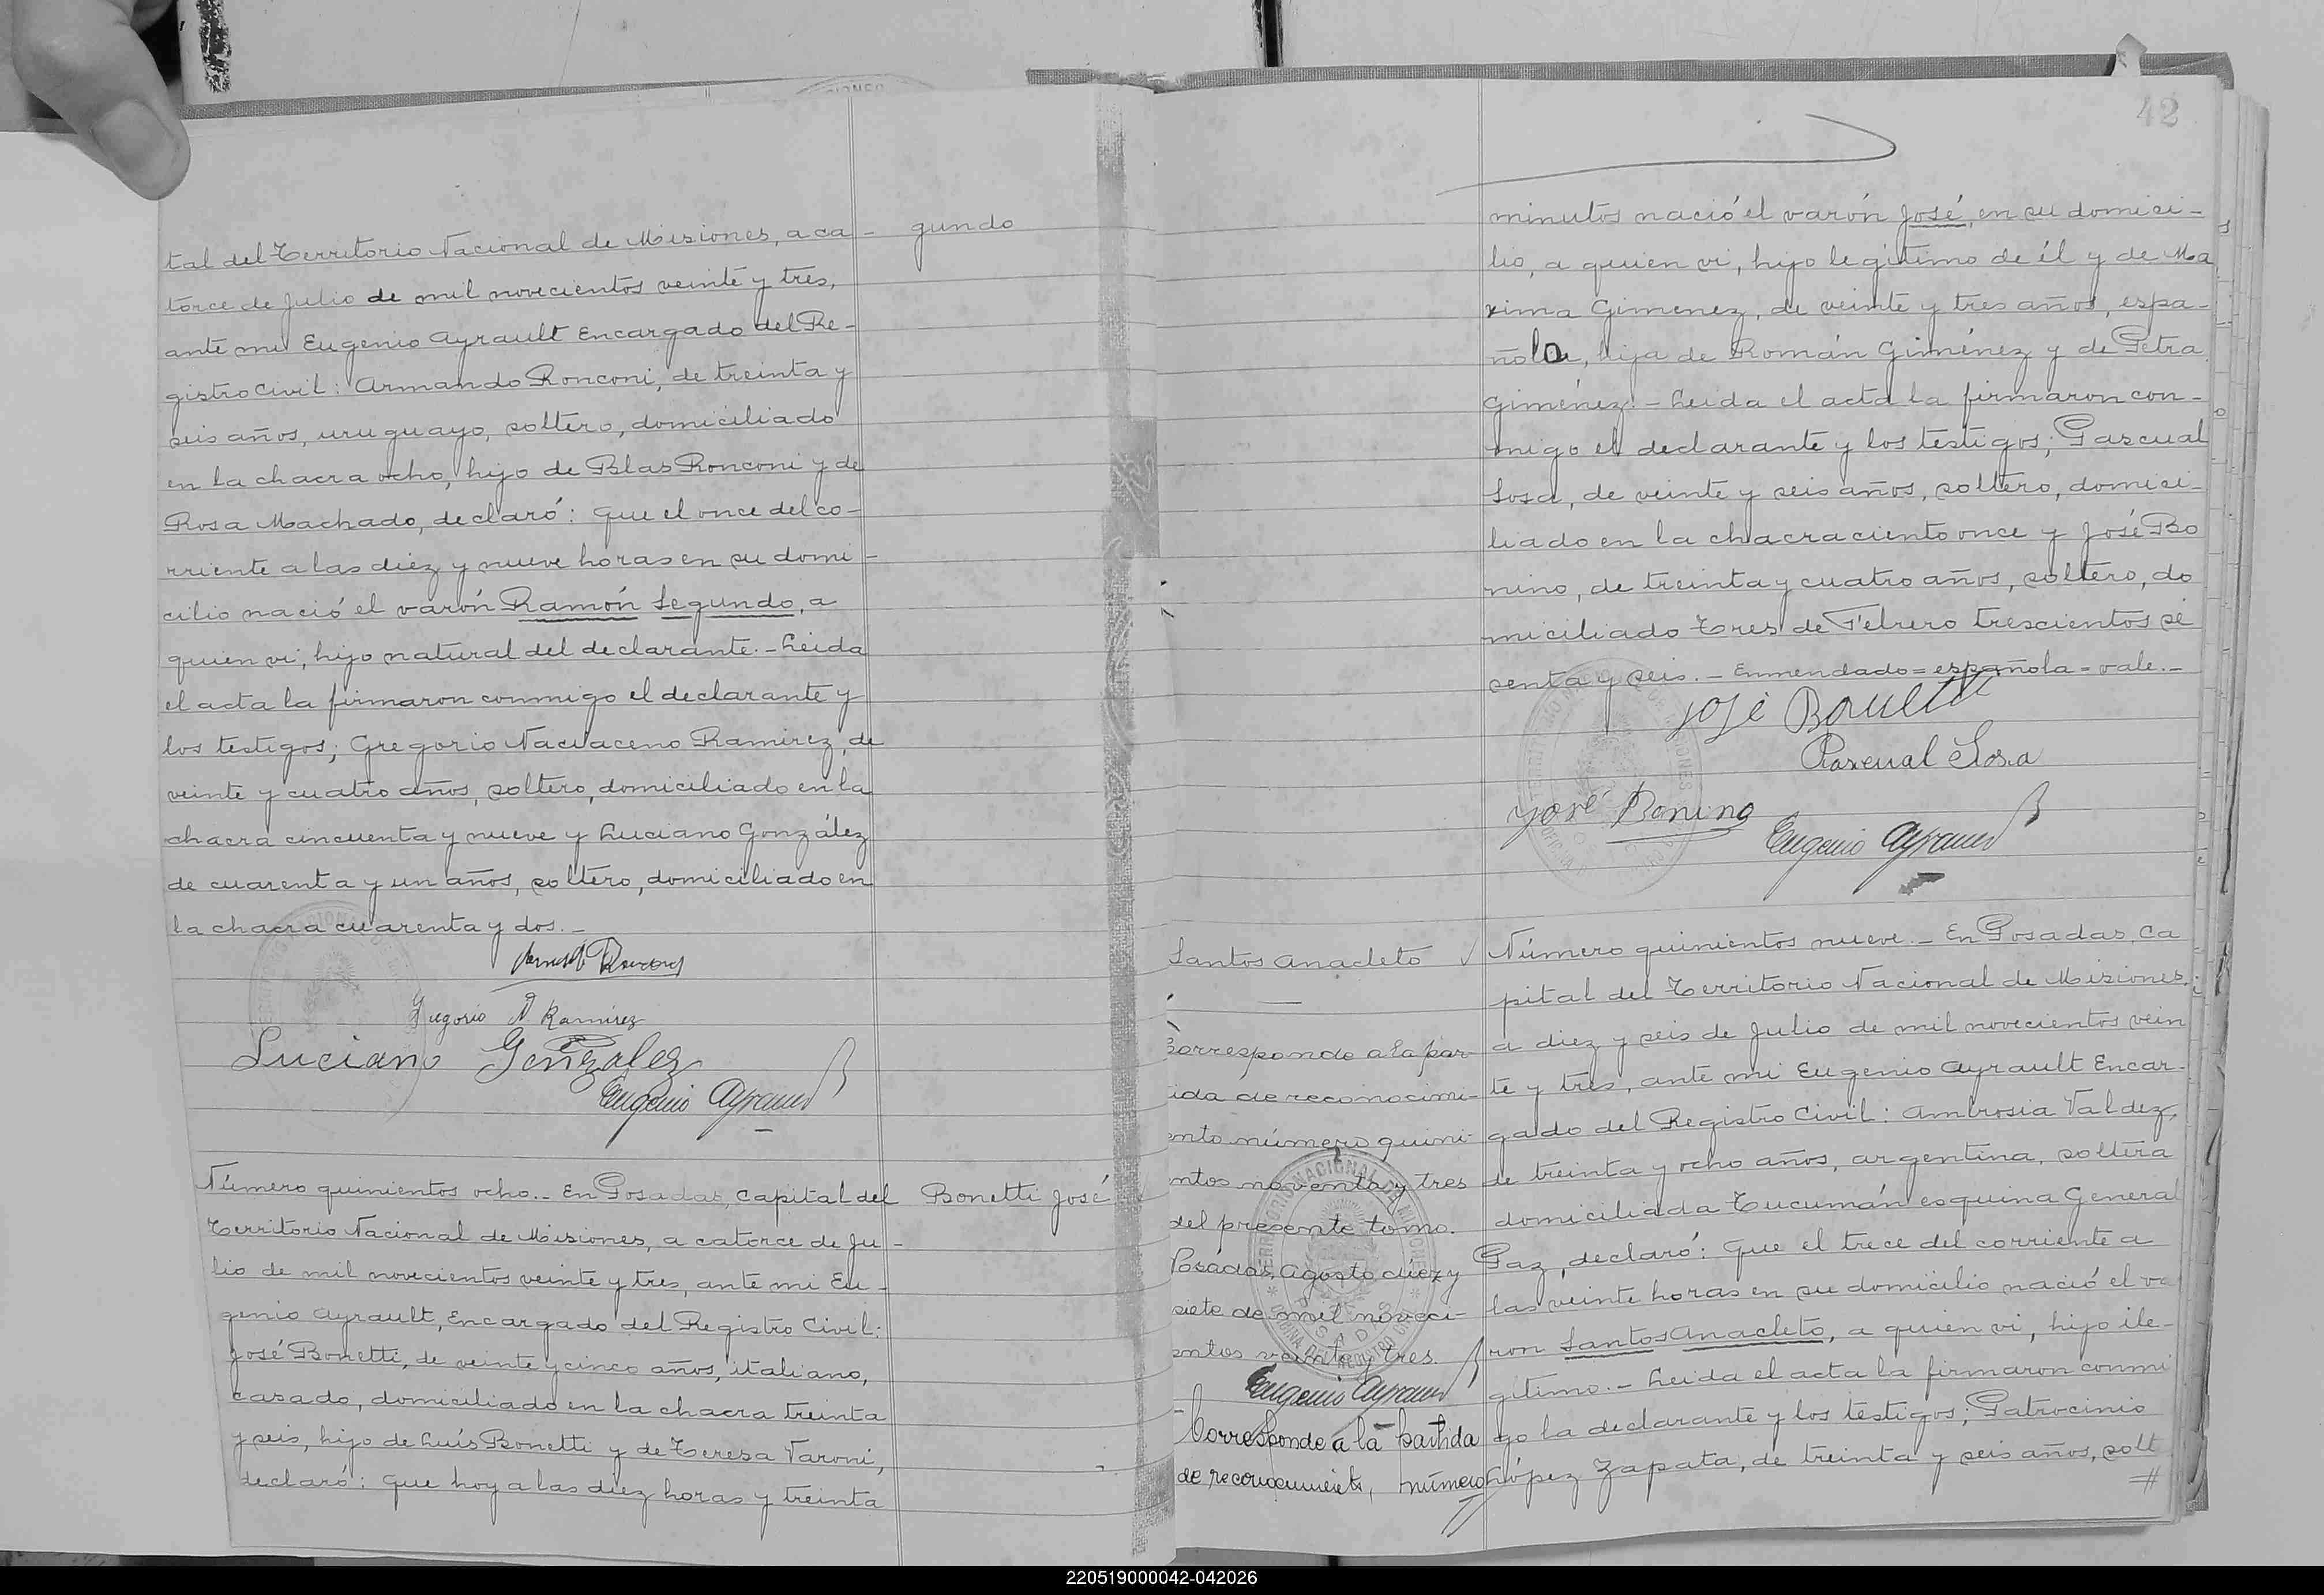 tal del Territorio Nacional de Misiones, a ca-
torce de Julio de mil novecientos veinte y tres,
ante mi Eugenio Ayrault Encargado del Re-
gistro Civil: Armando Ronconi, de treinta y
seis años, uruguayo, soltero, domiciliado
en la chacra ocho, hijo de Blas Ronconi y de
Rosa Machado, declaró: Que el once del co-
rriente a las diez y nueve horas en su domi-
cilio nació el varón Ramón Segundo, a
quien vi, hijo natural del declarante.- Leida
el acta la firmaron conmigo el declarante y
los testigos; Gregorio Ramirez, de
veinte y cuatro años, soltero, domiciliado en la
chacra cincuenta y nueve y Luciano González
de cuarenta y un años, soltero, domiciliado en
la chacra cuarenta y dos.-
Gregorio N. Ramirez
Luciano Gonzalez
Eugenio Ayrault
gundo
Número quinientos ocho.- En Posadas, Capital del
Territorio Nacional de Misiones, a catorce de Ju-
lio de mil novecientos veinte y tres, ante mi Eu-
genio Ayrault, Encargado del Registro Civil:
José Bonetti, de veinte y cinco años, italiano,
casado, domiciliado en la chacra treinta
y seis, hijo de Luis Bonetti y de Teresa Varoni,
declaró: Que hoy a las diez horas y treinta
Bonetti José
42
minutos nació el varón José, en su domici-
lio, a quien vi, hijo legitimo de él y de Ma
xima Gimenez, de veinte y tres años, espa-
ñola, hija de Román Giménez y de Petra
Giménez.- Leida el acta la firmaron con-
migo el declarante y los testigos; Pascual
Sosa, de veinte y seis años, soltero, domici-
liado en la chacra ciento once y José Bo
nino, de treinta y cuatro años, soltero, do
miciliado Tres de Febrero trescientos se
senta y seis.- Enmendado=española=vale.-
José Bonetti
Pascual Sosa
José Bonino
Eugenio Ayrault
Santos Anacleto
Corresponde a la par-
ida de reconocimi-
ento número quini-
ntos noventa y tres
del presente tomo.
Posadas, Agosto diez y
siete de mil noveci-
entos veinte y tres.
Eugenio Ayrault
Corresponde a la partida
de reconocimiento, número
Número quinientos nueve.- En Posadas, Ca
pital del Territorio Nacional de Misiones,
a diez y seis de Julio de mil novecientos vein
te y tres, ante mi Eugenio Ayrault Encar-
gado del Registro Civil: Ambrosia Valdez,
de treinta y ocho años, argentina, soltera
domiciliada Tucumán esquina General
Paz, declaró: Que el trece del corriente a
las veinte horas en su domicilio nació el va
ron Santos Anacleto, a quien vi, hijo ile-
gitimo.- Leida el acta la firmaron conmi
go la declarante y los testigos; Patrocinio
López Zapata, de treinta y seis años, solt
220519000042-042026